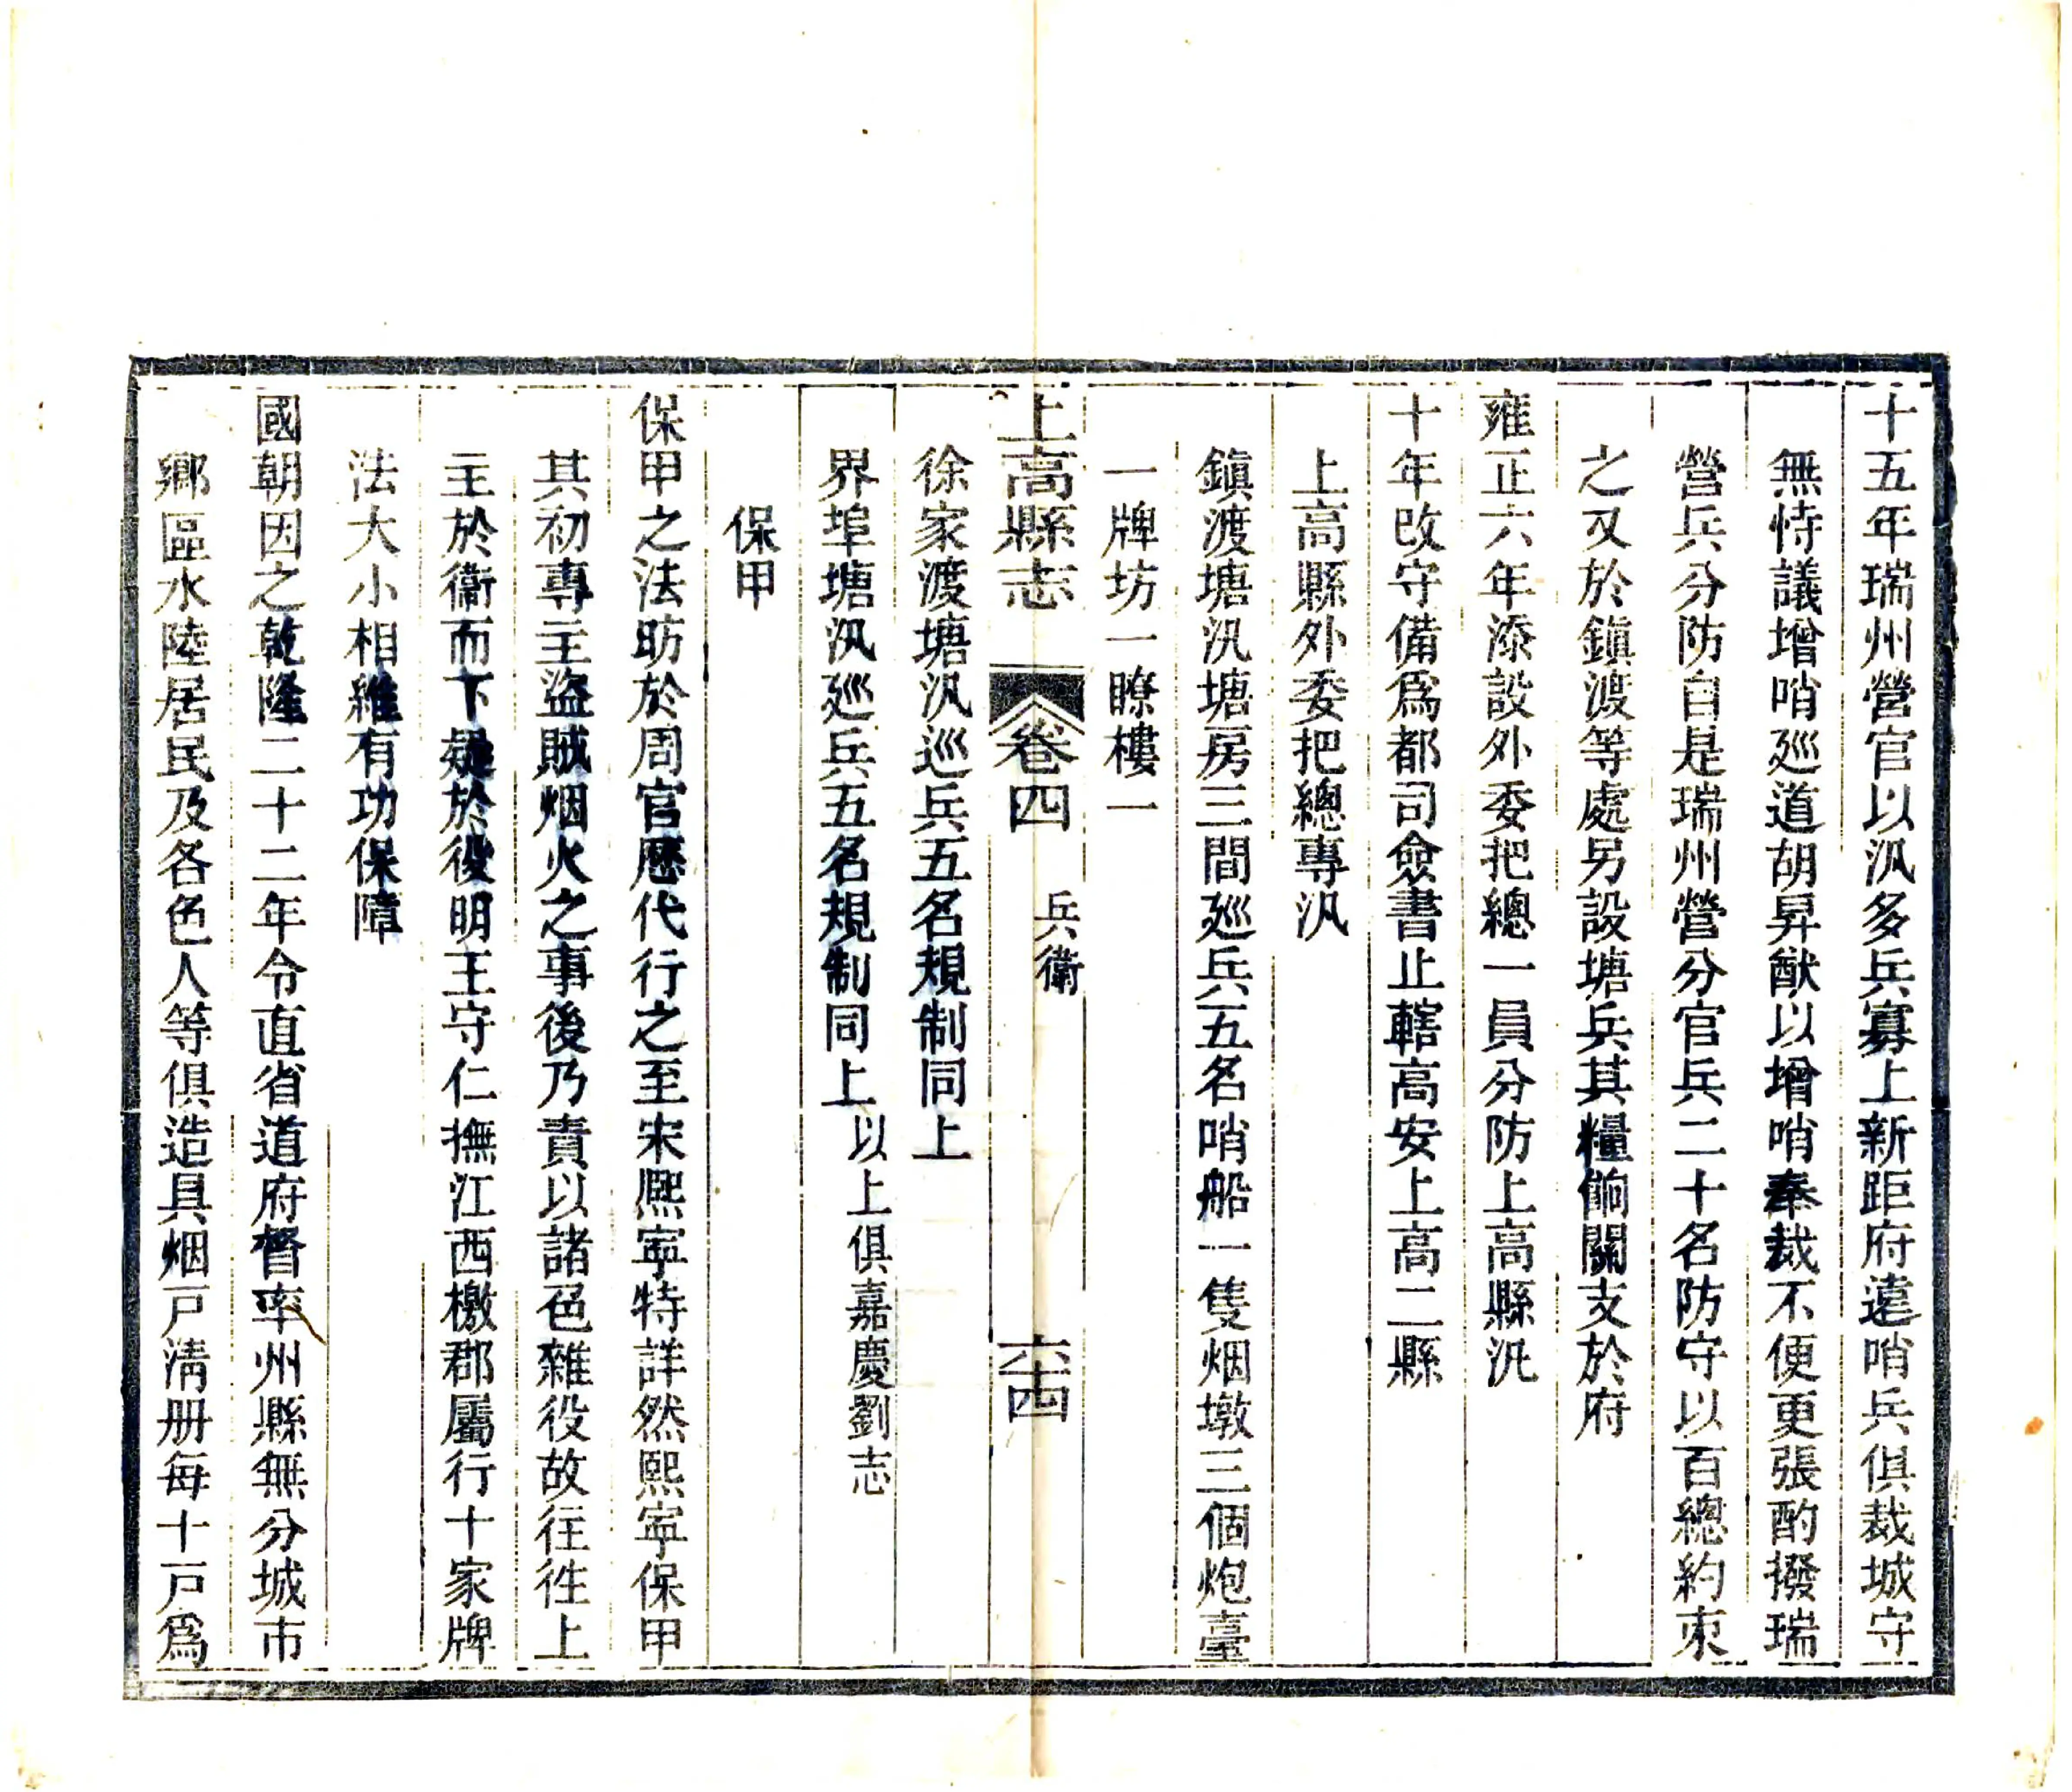 十五年瑞州營官以汛多兵寡上新距府遠哨兵俱裁城守
無恃議增哨廵道胡昇猷以增哨奉裁不便更張酌撥瑞
營兵分防自是瑞州營分官兵二十名防守以百總約束
之又於鎮渡等處另設塘兵其糧餉關支於府
雍正六年添設外委把總一員分防上高縣汛
十年改守備爲都司僉書止轄高安上高二縣
上高縣外委把總專汛
鎮渡塘汛塘房三間廵兵五名哨船一隻烟墩三個炮臺
一牌坊一瞭樓一
上高縣志 卷四 兵衛 六十四
徐家渡塘汛巡兵五名規制同上
界埠塘汛廵兵五名規制同上 以上俱嘉慶劉志
保甲
保甲之法昉於周官歷代行之至宋熙寧特詳然熙寧保甲
其初專主盜賊烟火之事後乃責以諸色雜役故往往上
主於衞而下疑於役明王守仁撫江西檄郡屬行十家牌
法大小相維有功保障
國朝因之乾隆二十二年令直省道府督率州縣無分城市
鄉區水陸居民及各色人等俱造具烟戸清册每十戸爲